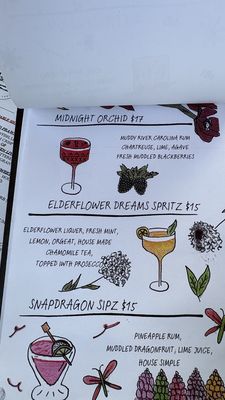 MIDNIGHT ORCHID $17
MUDDY RIVER CAROLINA RUM
CHARTREUSE, LIME, AGAVE
FRESH MUDDLED BLACKBERRIES
ELDERFLOWER DREAMS SPRITZ $15
ELDERFLOWER LIQUER, FRESH MINT,
LEMON, ORGEAT, HOUSE MADE
CHAMOMILE TEA,
TOPPED IWTH PROSECCO
SNAPDRAGON SIPZ $15
PINEAPPLE RUM,
MUDDLED DRAGONFRUIT, LIME JUICE,
HOUSE SIMPLE